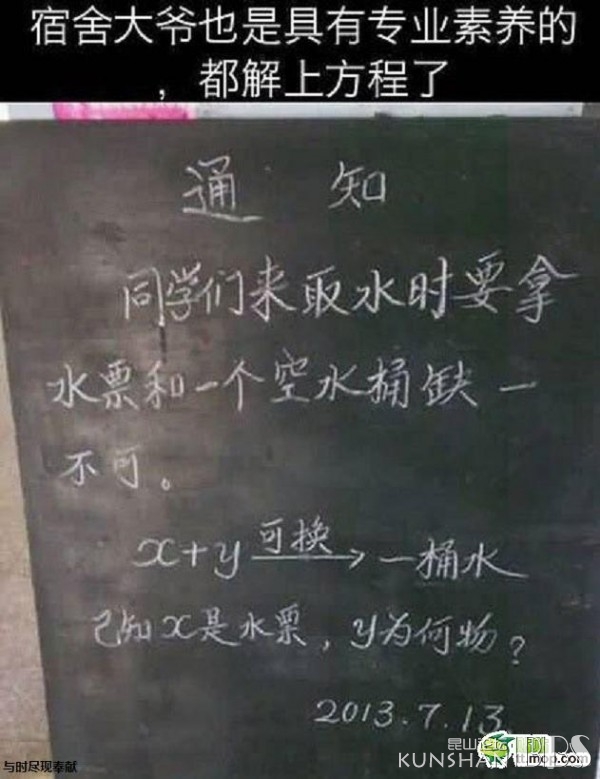 宿舍大爷也是具有专业素养的
，都解上方程了
通 知
同学们来取水时要拿
水票和一个空水桶缺一
不可。
x+y 可换→ 一桶水
已知x是水票，y为何物？
2013.7.13
与时尽现奉献
昆山论坛
KUNSHAN
tt.mop.com